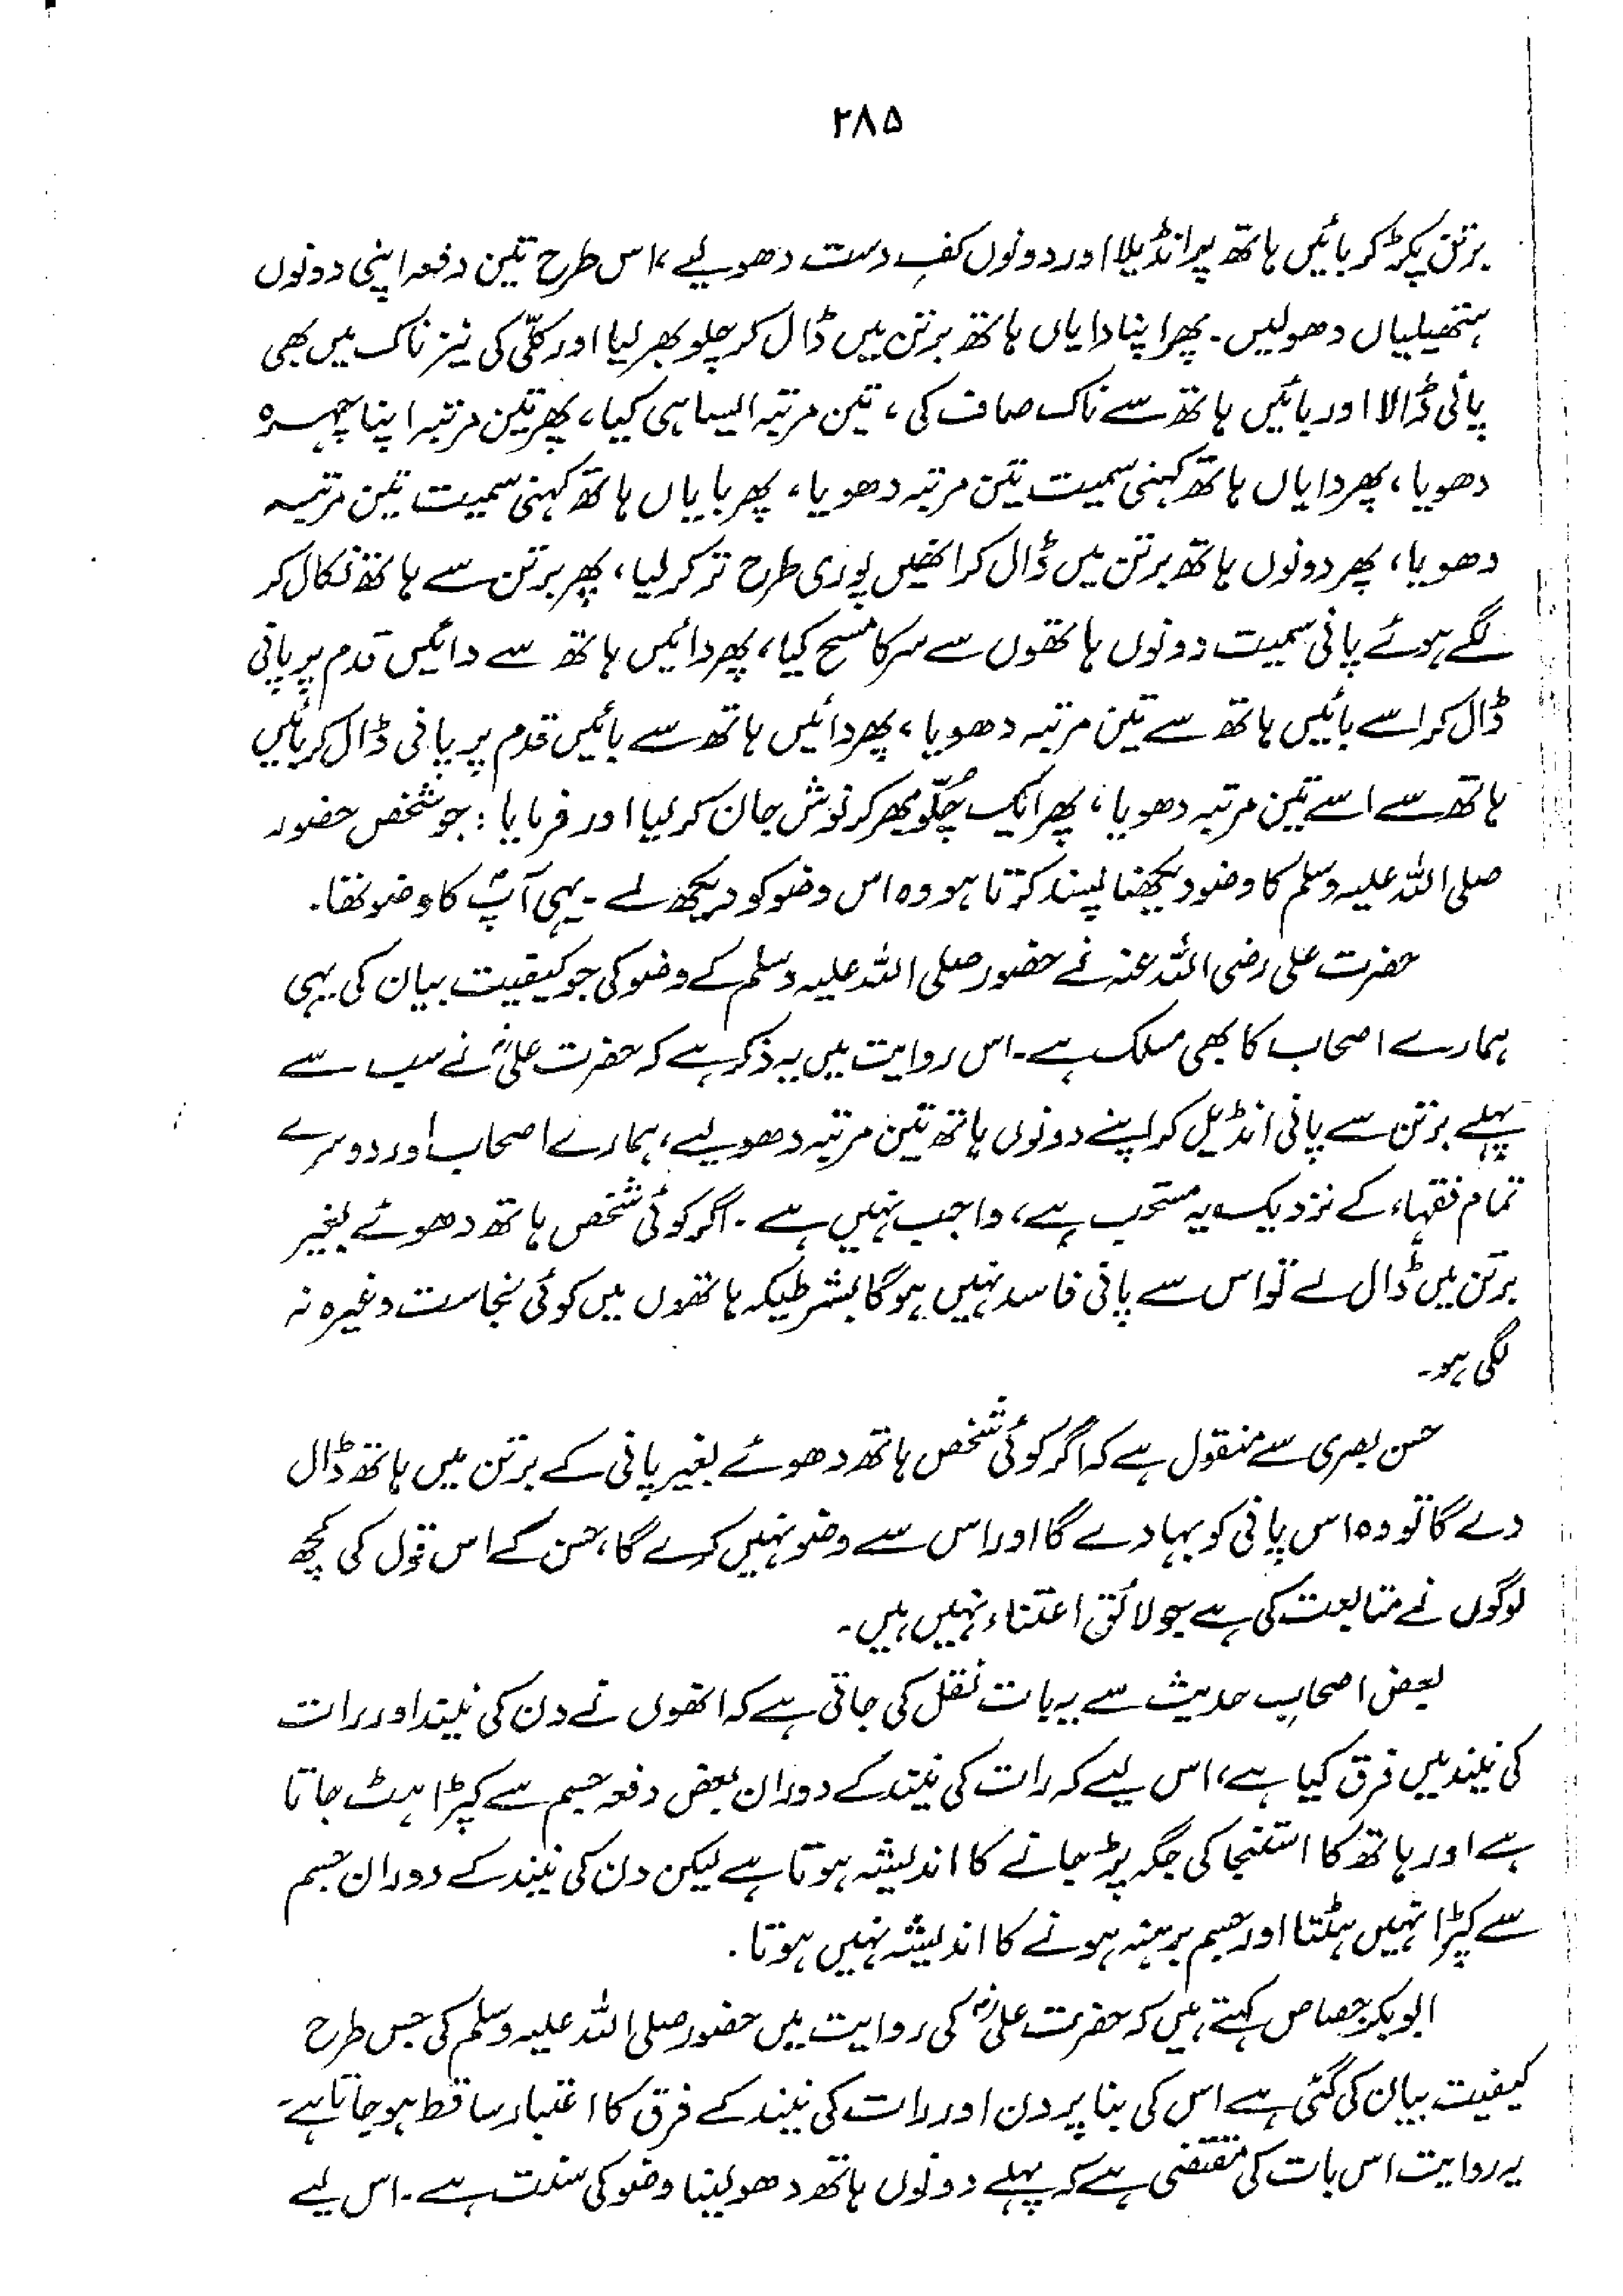 ۲۸۵
برتن پکڑ کر بائیں ہاتھ پر انڈیلا اور دونوں کفِ دست دھو لیے، اس طرح تین دفعہ اپنی دونوں
ہتھیلیاں دھولیں۔ پھر اپنا دایاں ہاتھ برتن میں ڈال کر چلو بھر لیا اور کلّی کی نیز ناک میں بھی
پانی ڈالا اور بائیں ہاتھ سے ناک صاف کی، تین مرتبہ ایسا ہی کیا، پھر تین مرتبہ اپنا چہرہ
دھویا، پھر دایاں ہاتھ کہنی سمیت تین مرتبہ دھویا، پھر بایاں ہاتھ کہنی سمیت تین مرتبہ
دھویا، پھر دونوں ہاتھ برتن میں ڈال کر انھیں پوری طرح تر کر لیا، پھر برتن سے ہاتھ نکال کر
لگے ہوئے پانی سمیت دونوں ہاتھوں سے سر کا مسح کیا، پھر دائیں ہاتھ سے دائیں قدم پر پانی
ڈال کر اسے بائیں ہاتھ سے تین مرتبہ دھویا، پھر دائیں ہاتھ سے بائیں قدم پر پانی ڈال کر بائیں
ہاتھ سے اسے تین مرتبہ دھویا، پھر ایک چُلّو بھر کر نوش جان کر لیا اور فرمایا: جو شخص حضور
صلی اللہ علیہ وسلم کا وضو دیکھنا پسند کرتا ہو وہ اس وضو کو دیکھ لے۔ یہی آپؐ کا وضو تھا۔
حضرت علی رضی اللہ عنہ نے حضور صلی اللہ علیہ وسلم کے وضو کی جو کیفیت بیان کی یہی
ہمارے اصحاب کا بھی مسلک ہے۔ اس روایت میں یہ ذکر ہے کہ حضرت علیؓ نے سب سے
پہلے برتن سے پانی انڈیل کر اپنے دونوں ہاتھ تین مرتبہ دھو لیے، ہمارے اصحاب اور دوسرے
تمام فقہاء کے نزدیک یہ مستحب ہے، واجب نہیں ہے۔ اگر کوئی شخص ہاتھ دھوئے بغیر
برتن میں ڈال لے تو اس سے پانی فاسد نہیں ہوگا بشرطیکہ ہاتھوں میں کوئی نجاست وغیرہ نہ
لگی ہو۔
حسن بصری سے منقول ہے کہ اگر کوئی شخص ہاتھ دھوئے بغیر پانی کے برتن میں ہاتھ ڈال
دے گا تو وہ اس پانی کو بہا دے گا اور اس سے وضو نہیں کرے گا، حسن کے اس قول کی کچھ
لوگوں نے متابعت کی ہے جو لائق اعتناء نہیں ہیں۔
بعض اصحابِ حدیث سے یہ بات نقل کی جاتی ہے کہ انھوں نے دن کی نیند اور رات
کی نیند میں فرق کیا ہے، اس لیے کہ رات کی نیند کے دوران بعض دفعہ جسم سے کپڑا ہٹ جاتا
ہے اور ہاتھ کا استنجا کی جگہ پڑ جانے کا اندیشہ ہوتا ہے لیکن دن کی نیند کے دوران جسم
سے کپڑا نہیں ہٹتا اور جسم برہنہ ہونے کا اندیشہ نہیں ہوتا۔
ابوبکر جصاص کہتے ہیں کہ حضرت علیؓ کی روایت میں حضور صلی اللہ علیہ وسلم کی جس طرح
کیفیت بیان کی گئی ہے اس کی بنا پر دن اور رات کی نیند کے فرق کا اعتبار ساقط ہو جاتا ہے۔
یہ روایت اس بات کی مقتضی ہے کہ پہلے دونوں ہاتھ دھو لینا وضو کی سنت ہے۔ اس لیے